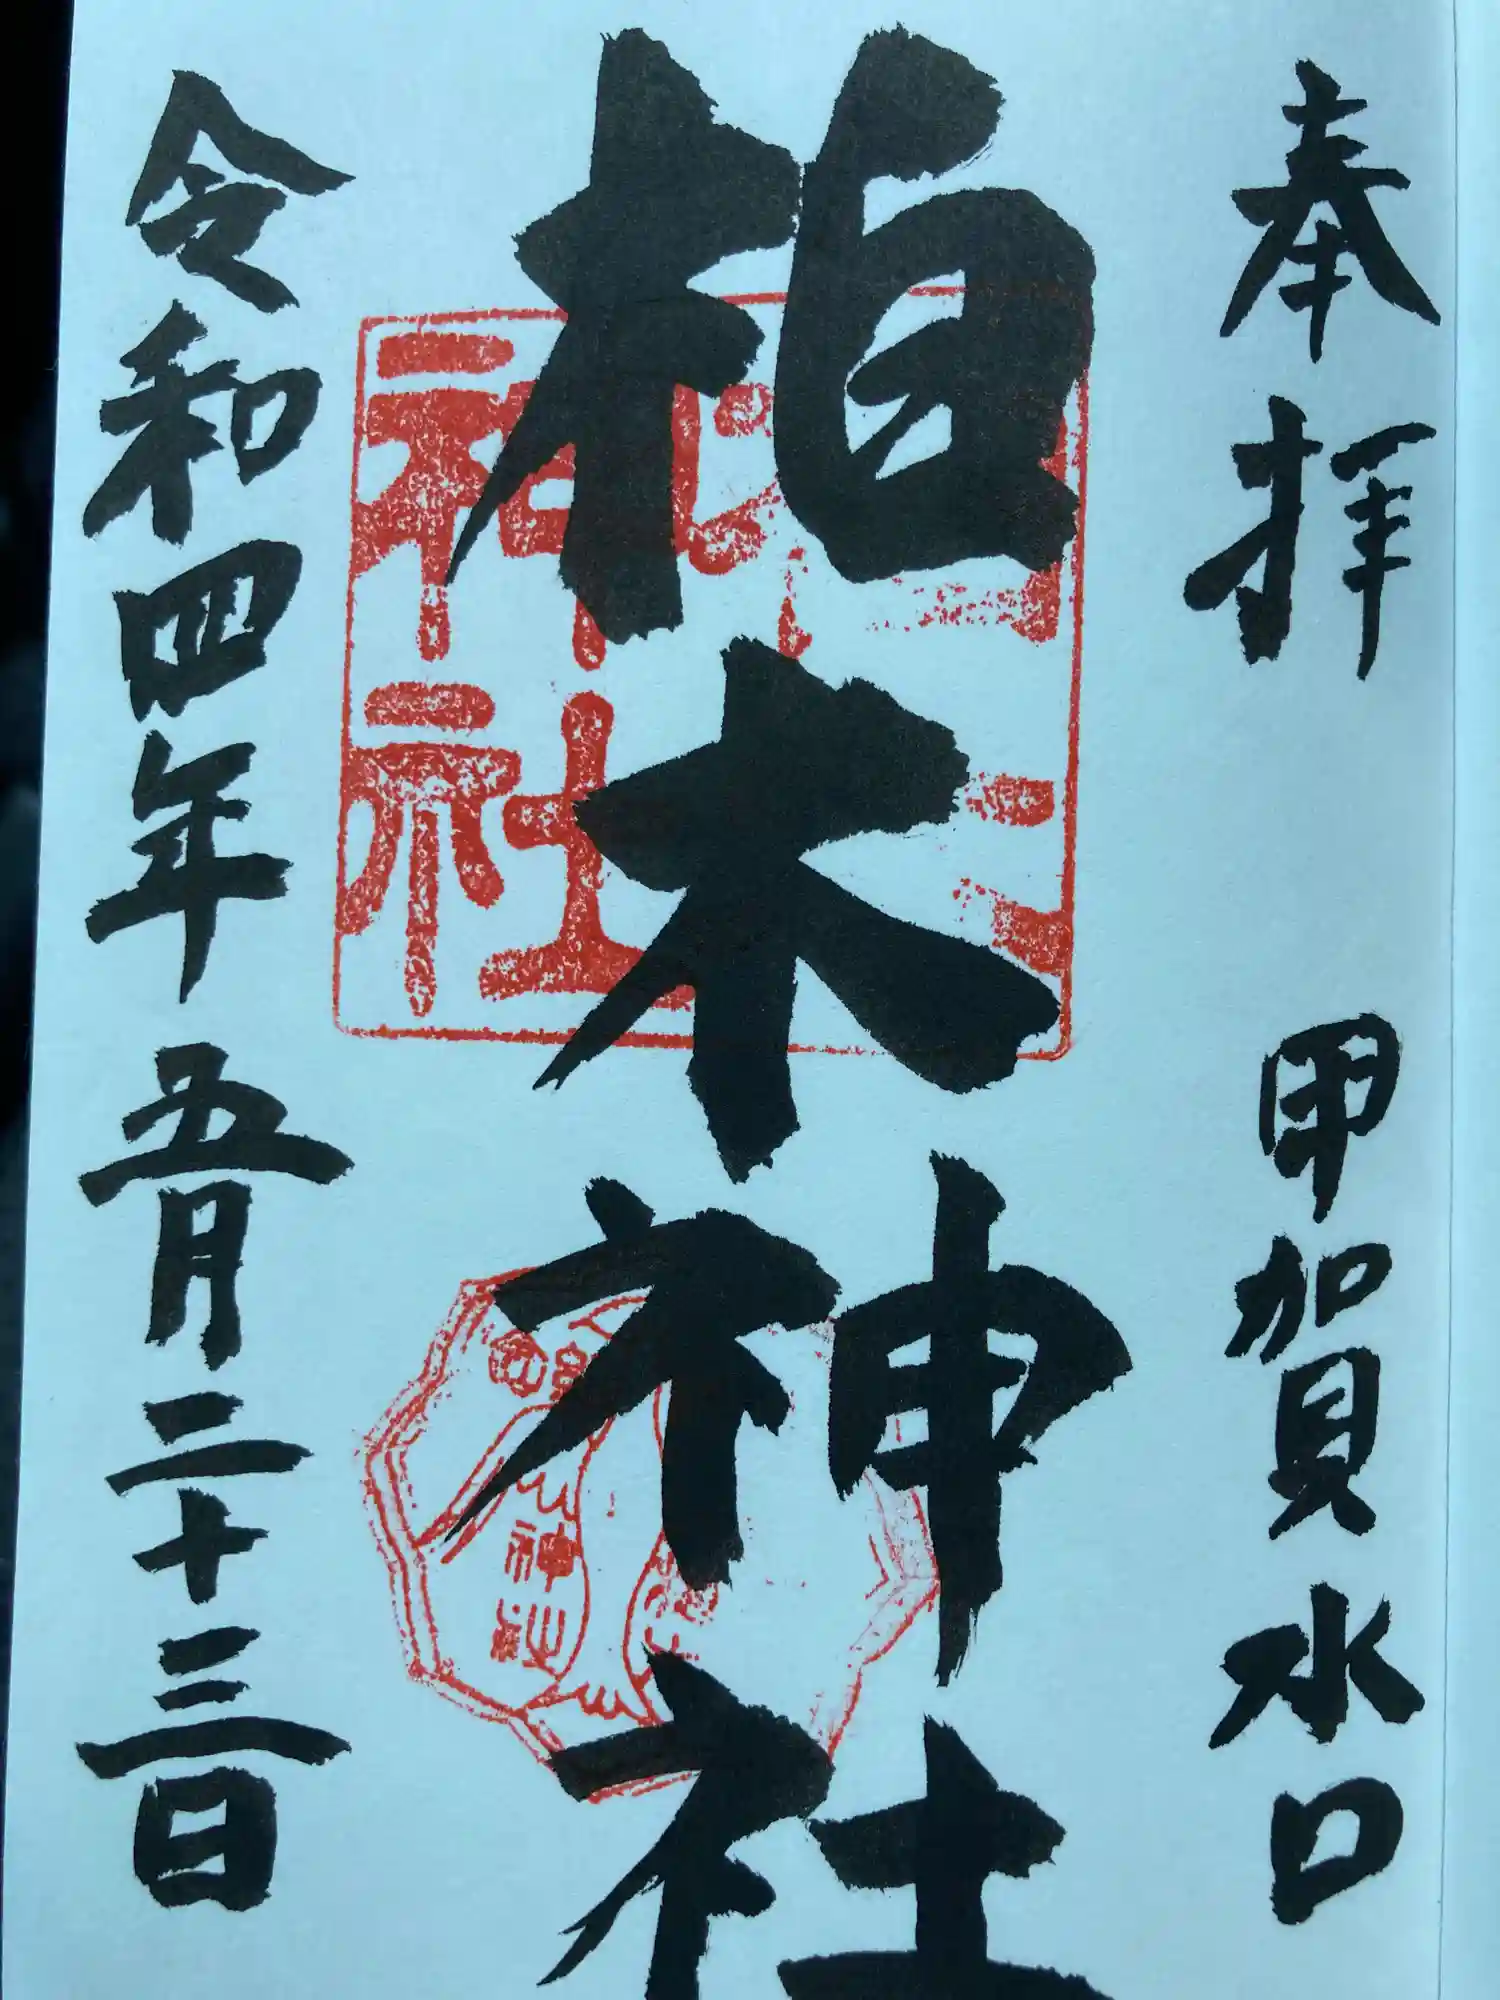 奉拝 甲賀 水口
柏木神社
神社
神社
令和四年五月二十三日